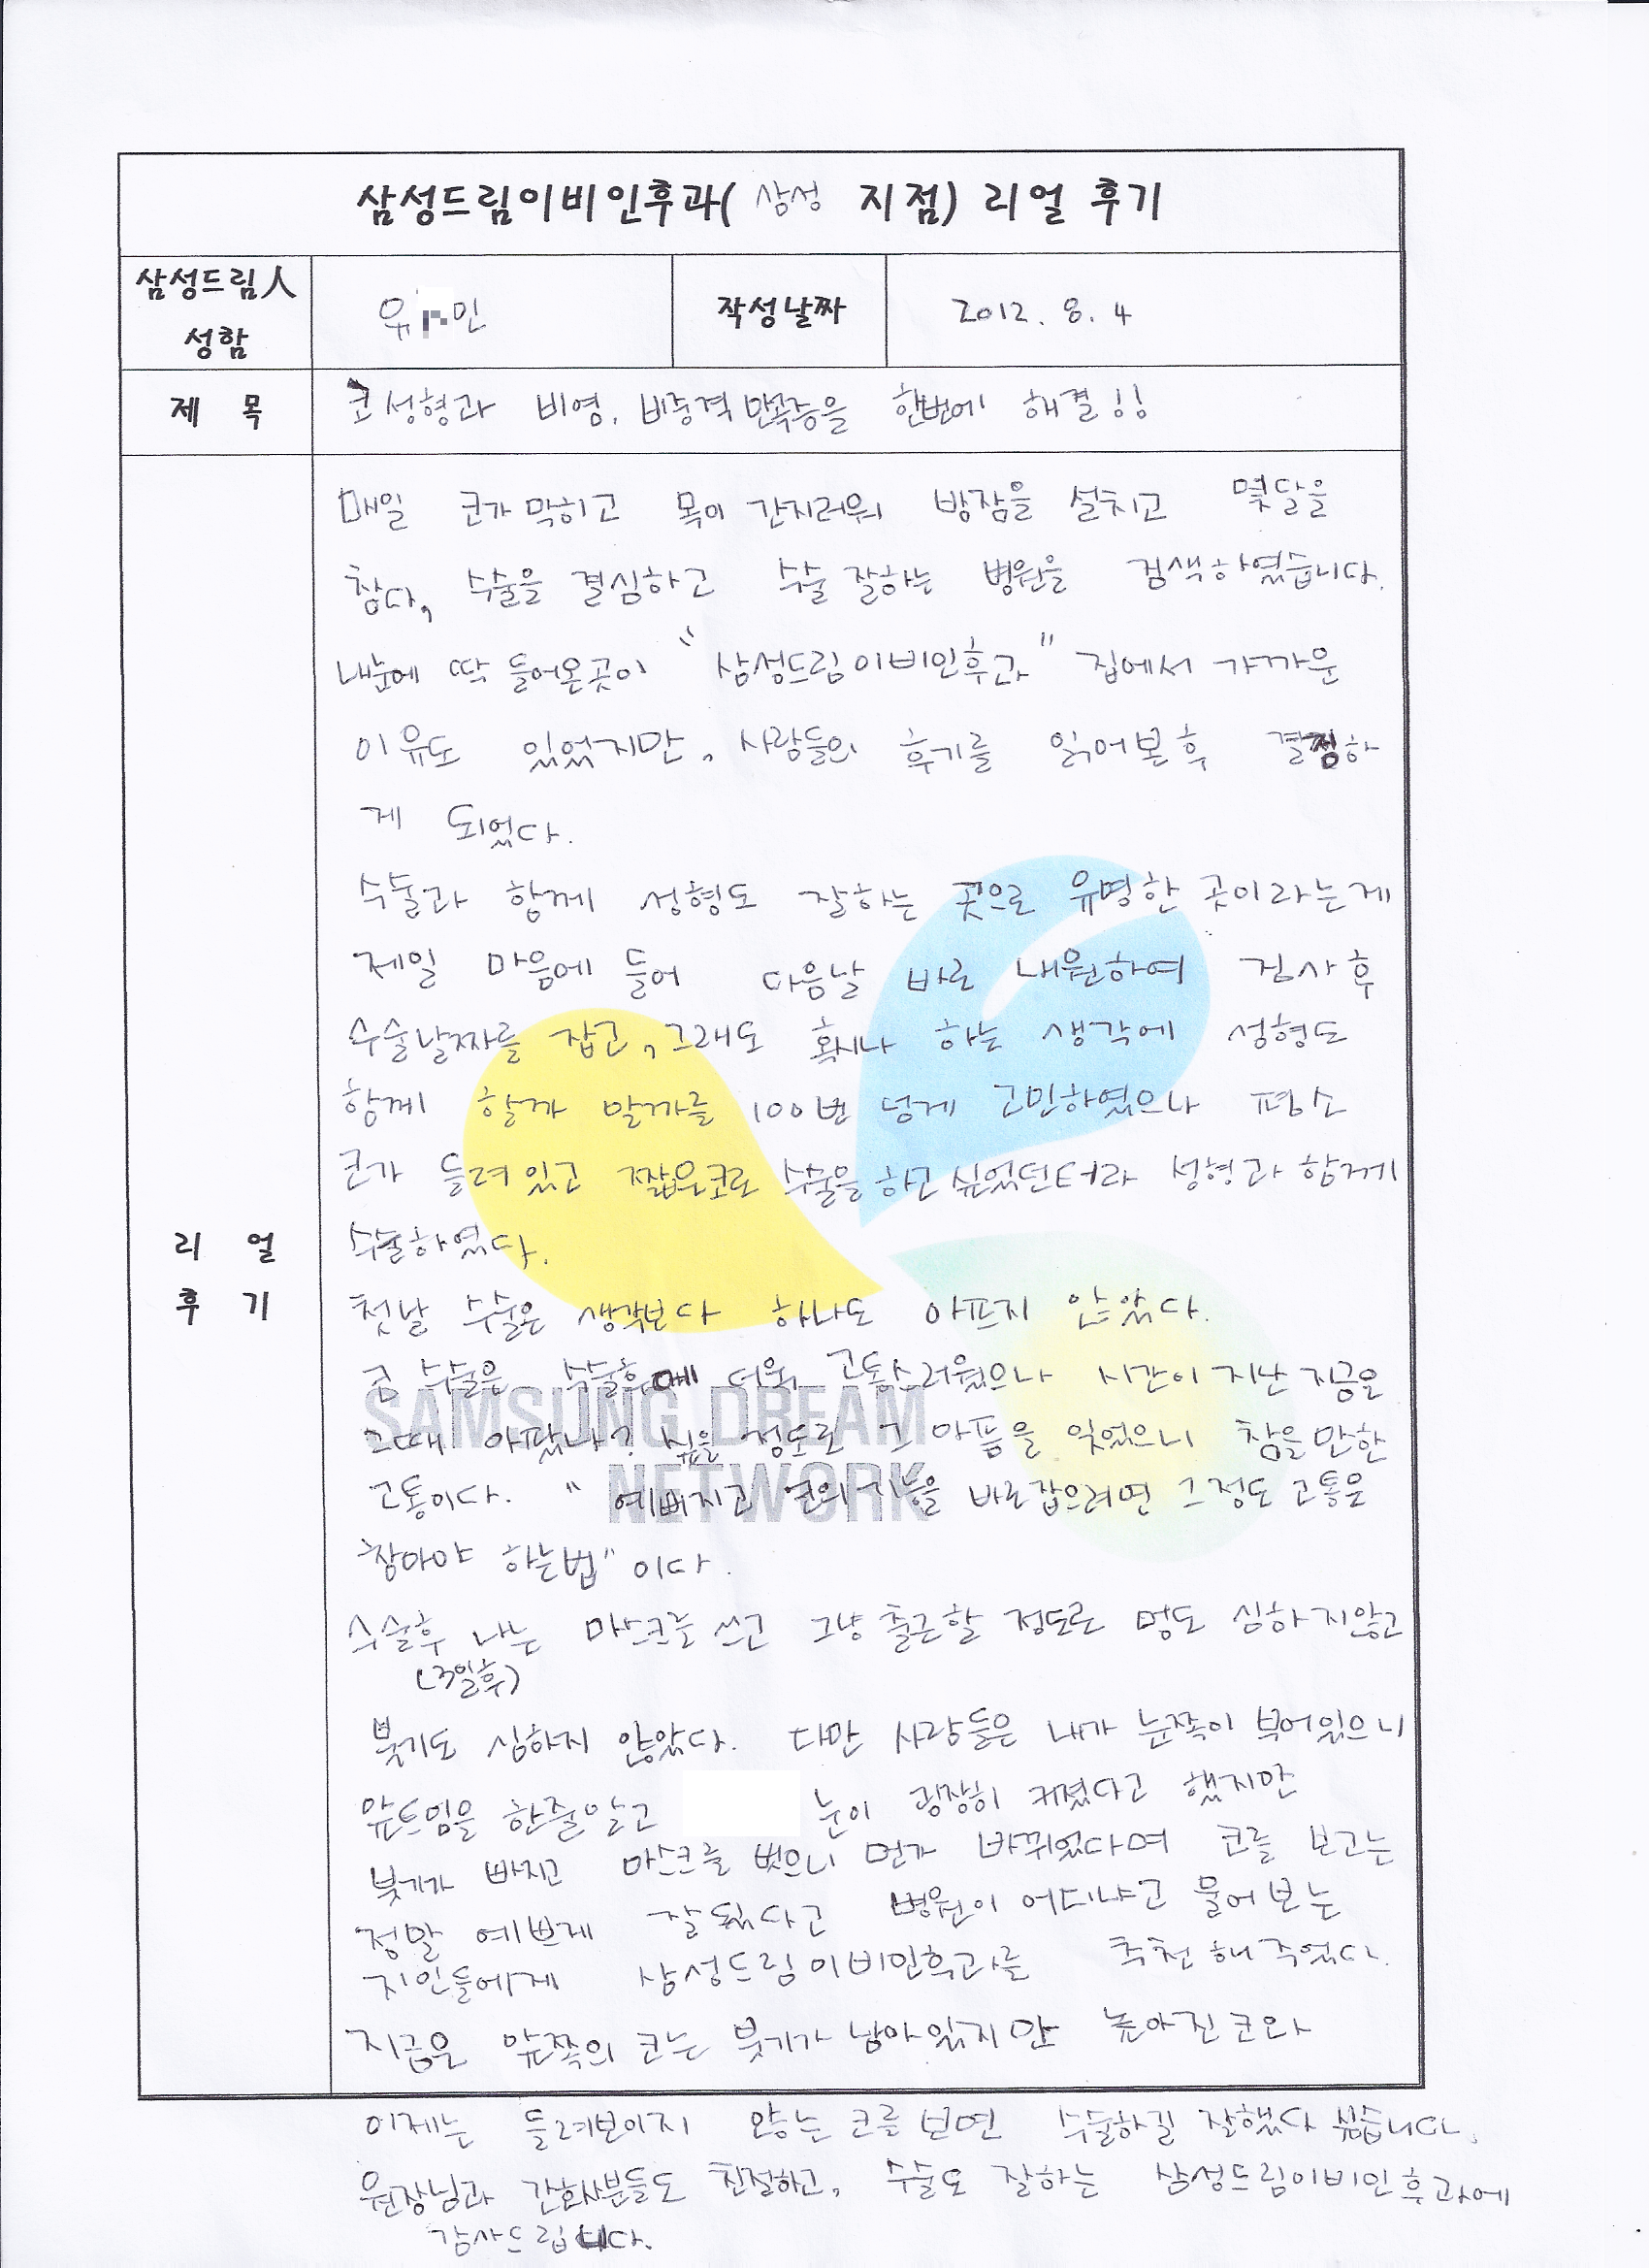 삼성드림이비인후과( 삼성 지점) 리얼 후기
삼성드림人 성함
유 민
작성날짜
2012. 8. 4
제 목
코성형과 비염. 비중격만곡증을 한번에 해결!!
리 얼 후 기
매일 코가 막히고 목이 간지러워 밤잠을 설치고 몇달을
참다, 수술을 결심하고 수술 잘하는 병원을 검색하였습니다.
내눈에 딱 들어온곳이 "삼성드림이비인후과" 집에서 가까운
이유도 있었지만, 사람들의 후기를 읽어본후 결정하
게 되었다.
수술과 함께 성형도 잘하는 곳으로 유명한 곳이라는게
제일 마음에 들어 다음날 바로 내원하여 검사후
수술날짜를 잡고, 그래도 혹시나 하는 생각에 성형도
함께 할까 말까를 100번 넘게 고민하였으나 평소
코가 들려있고 짧은코로 수술을하고싶었던터라 성형과 함께
수술하였다.
첫날 수술은 생각보다 하나도 아프지 않았다.
코 수술은 수술후에 더욱 고통스러웠으나 시간이 지난 지금은
그때 아팠나? 싶을 정도로 그 아픔을 잊었으니 참을만한
고통이다. " 예뻐지고 코의 기능을 바로잡으려면 그정도 고통은
참아야 하는법" 이다.
수술후 나는 마스크를 쓰고 그냥 출근할 정도로 멍도 심하지않고
(3일후)
붓기도 심하지 않았다. 다만 사람들은 내가 눈쪽이 부어있으니
앞트임을 한줄알고 눈이 굉장히 커졌다고 했지만
붓기가 빠지고 마스크를 벗으니 먼가 바뀌었다며 코를 보고는
정말 예쁘게 잘됬다고 병원이 어디냐고 물어보는
지인들에게 삼성드림이비인후과를 추천해주었다.
지금은 앞쪽의 코는 붓기가 남아있지만 높아진코와
이제는 들려보이지 않는 코를 보면 수술하길 잘했다 싶습니다.
원장님과 간호사분들도 친절하고, 수술도 잘하는 삼성드림이비인후과에
감사드립니다.
SAMSUNG DREAM
NETWORK